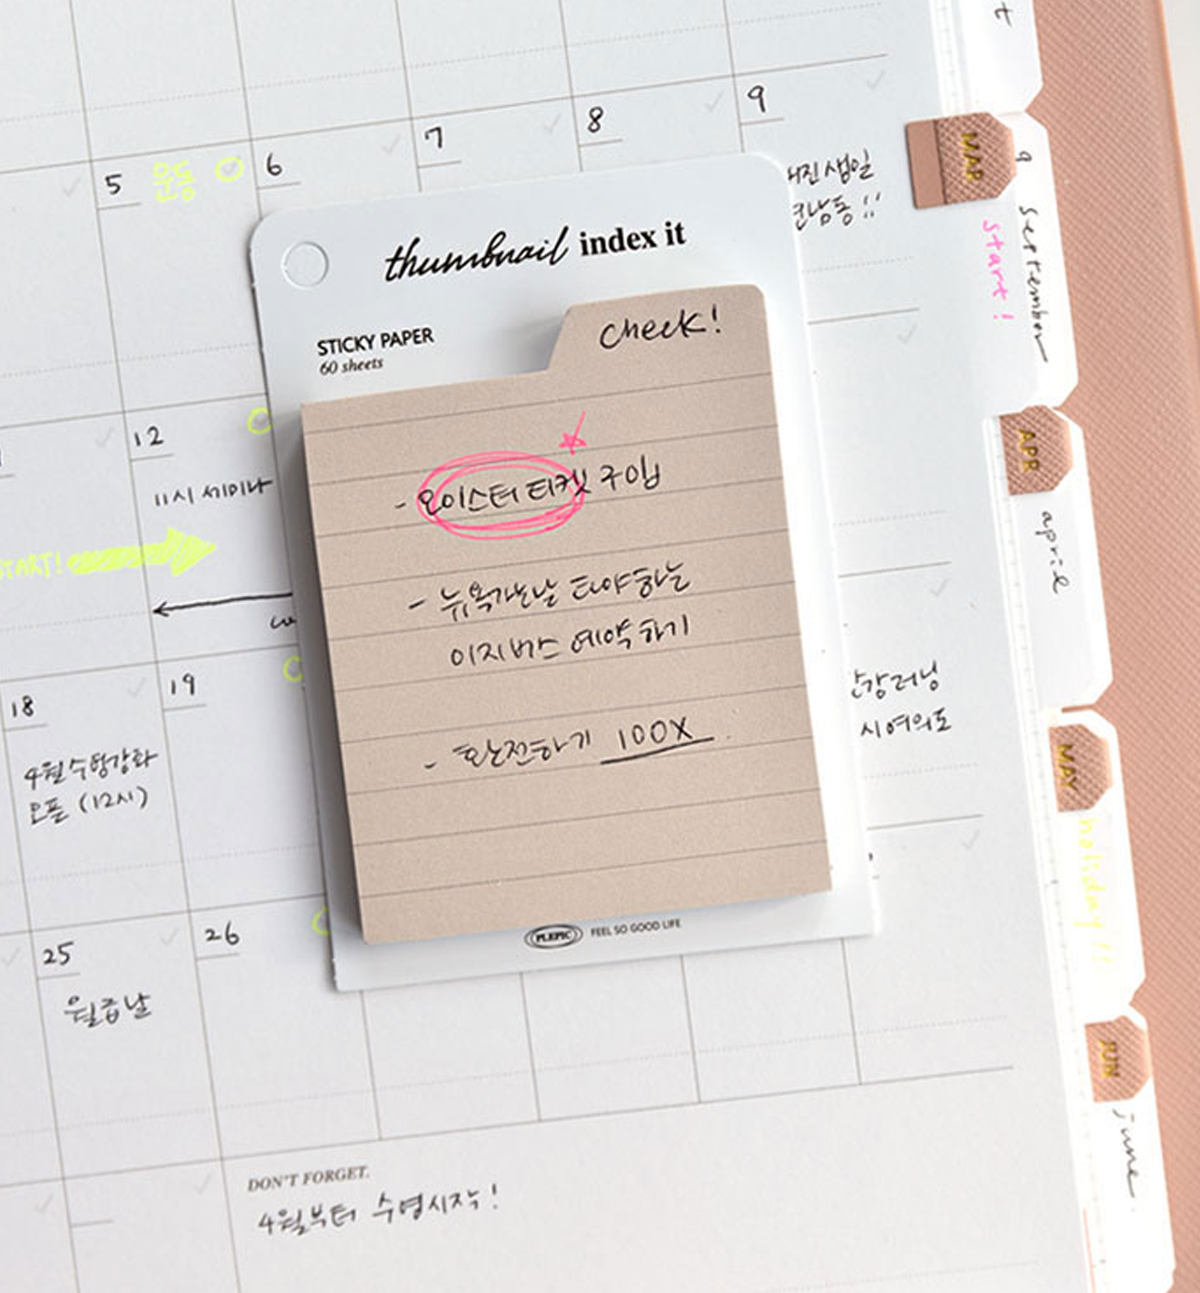 t
5 운동
6
7
8
9
생일
MAR
9 september
start!
thumbnail index it
STICKY PAPER
60 sheets
check!
- 오이스터 티켓 구입
- 뉴욕가는날 타야하는
이지버스 예약하기
- 환전하기 100X
PLEPIC FEEL SO GOOD LIFE
12
11시 세미나
START!
APR
april
18
4월 수강강화
오픈 (12시)
19
한강러닝
시 여의도
MAY
holiday!!!
25
월급날
26
JUN
june
DON'T FORGET.
4월부터 수영시작!